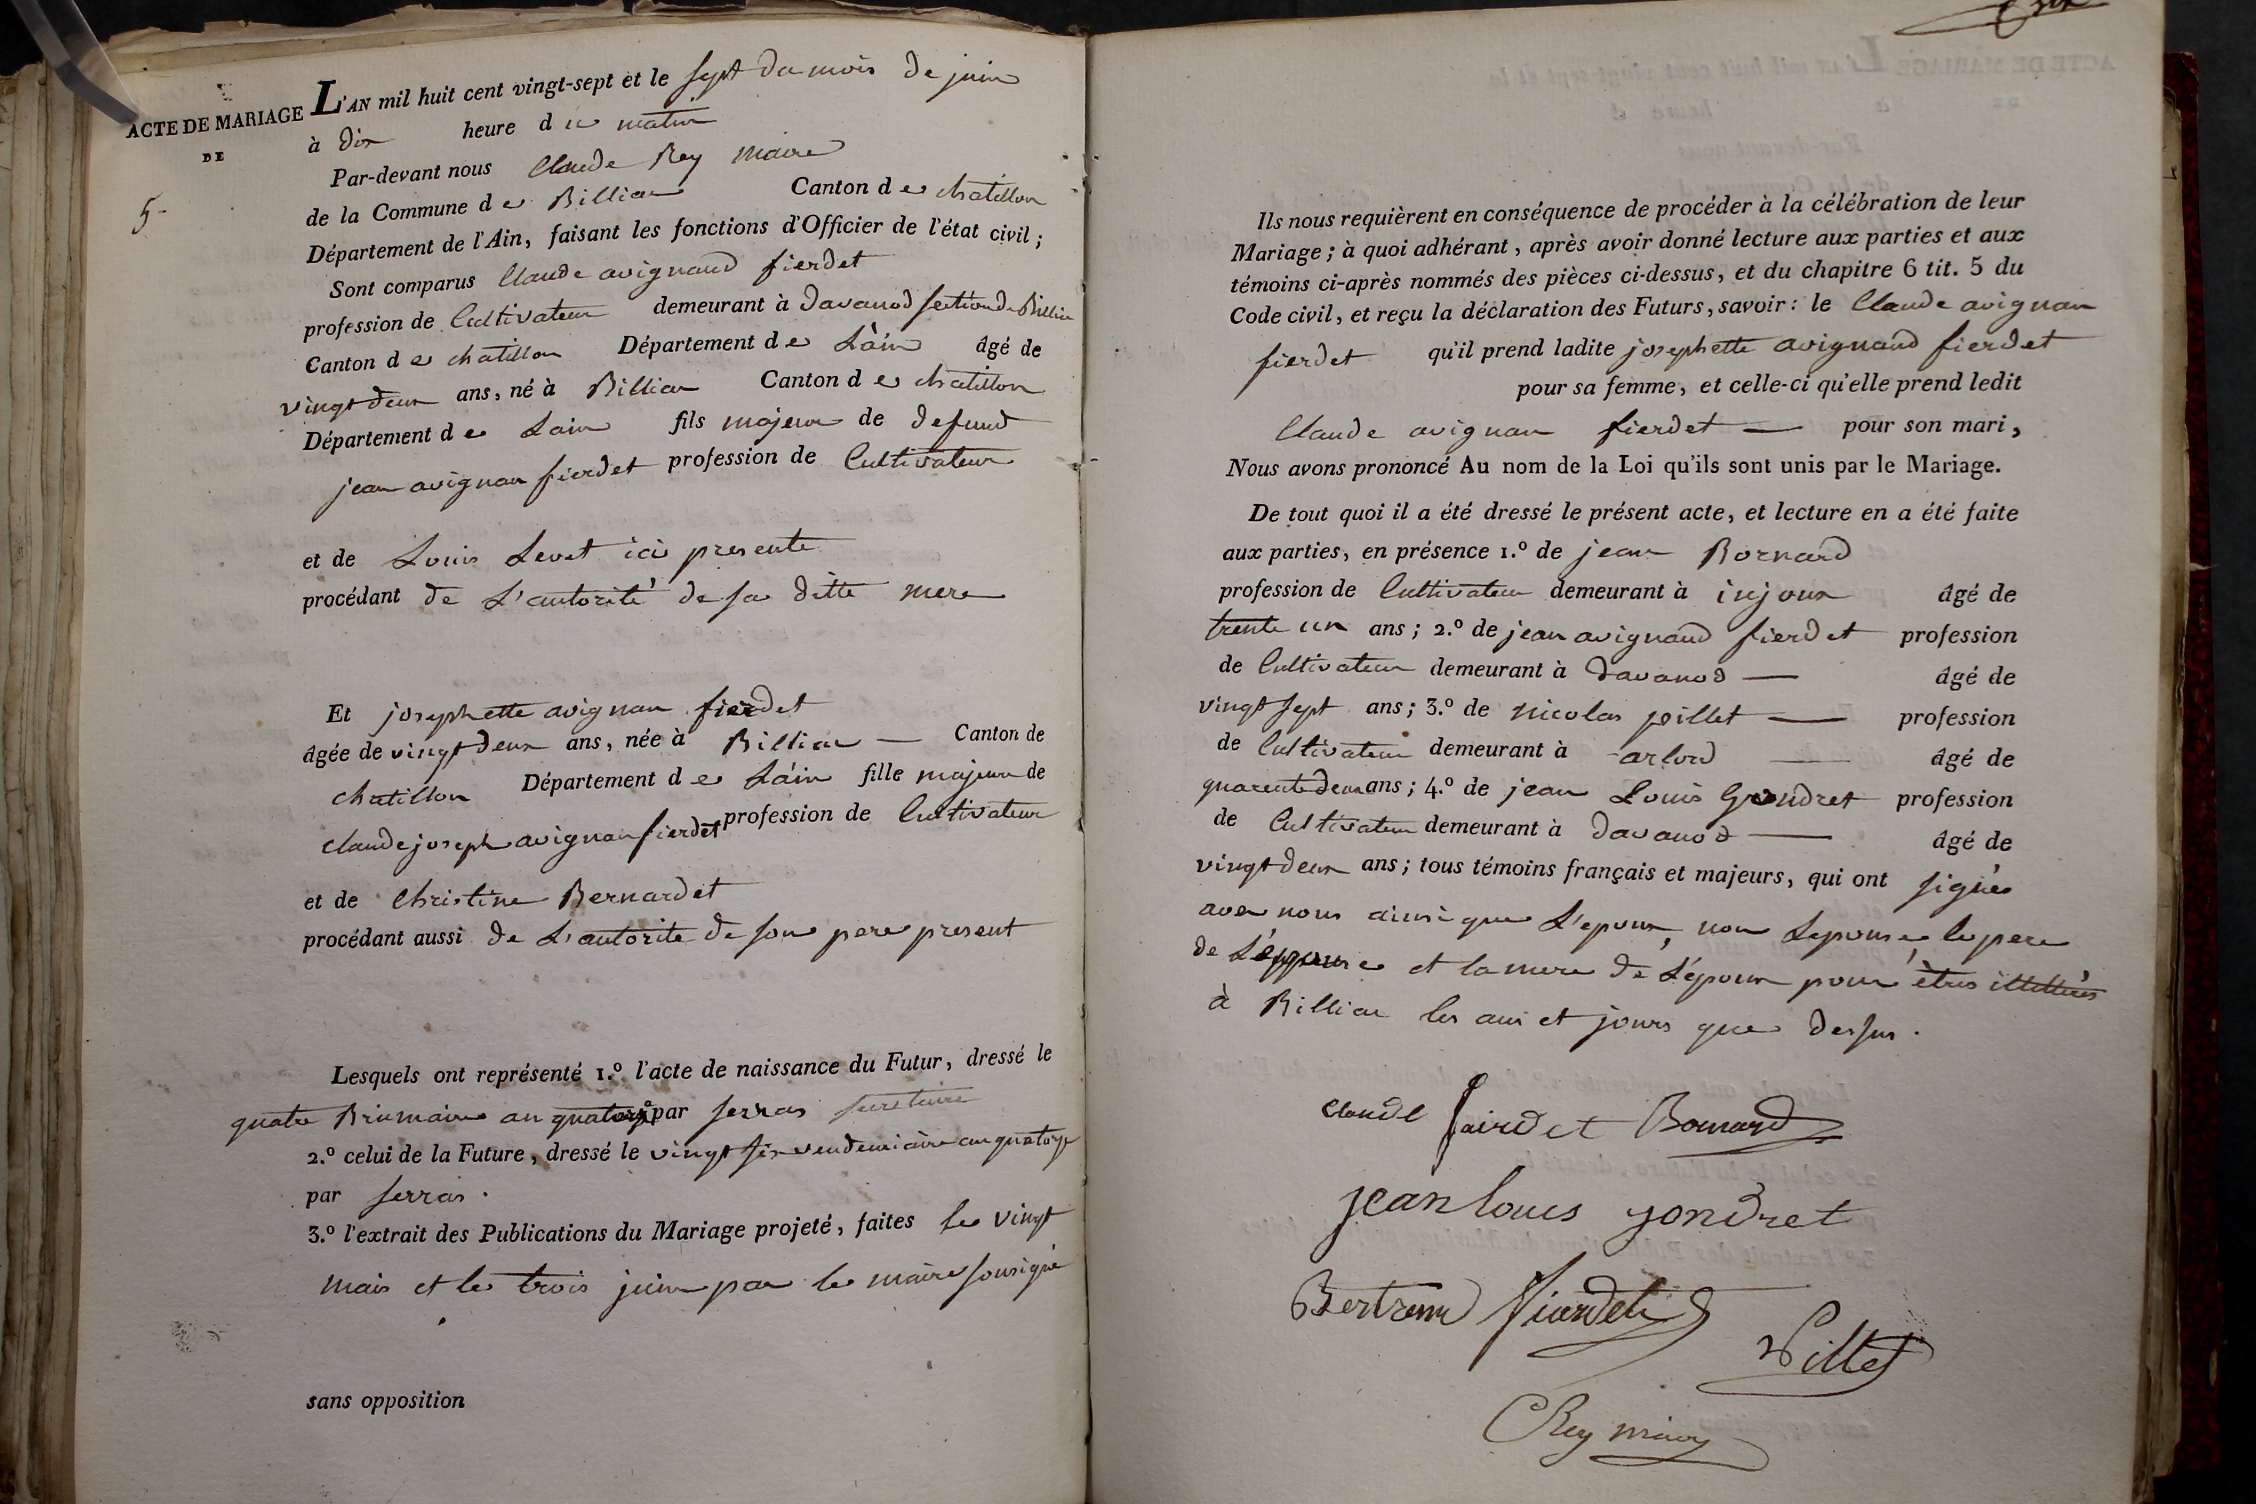 ACTE DE MARIAGE
DE
5
L'AN mil huit cent vingt-sept et le sept du mois de juin
à dix heure du matin
Par-devant nous Claude Rey maire
de la Commune de Billiat Canton de chatillon
Département de l'Ain, faisant les fonctions d'Officier de l'état civil;
Sont comparus Claude avignand fierdet
profession de Cultivateur demeurant à davanod section de Billiat
Canton de chatillon Département de L'ain âgé de
vingt deux ans, né à Billiat Canton de chatillon
Département de Lain fils majeur de defunt
jean avignan fierdet profession de Cultivateur
et de Louis Levet ici presente
procédant de L'autorité de sa ditte mere
Et josephette avignan fierdet
âgée de vingt deux ans, née à Billiat — Canton de
chatillon Département de L'ain fille majeure de
claude joseph avignan fierdet profession de Cultivateur
et de Christine Bernardet
procédant aussi de L'autorite de son pere present
Lesquels ont représenté 1.º l'acte de naissance du Futur, dressé le
quatre Brumaire an quatorze par serras secretaire
2.º celui de la Future, dressé le vingt six vendemiaire an quatorze
par serras.
3.º l'extrait des Publications du Mariage projeté, faites le vingt
mais et le trois juin par le maire sousigné
sans opposition
Ils nous requièrent en conséquence de procéder à la célébration de leur
Mariage; à quoi adhérant, après avoir donné lecture aux parties et aux
témoins ci-après nommés des pièces ci-dessus, et du chapitre 6 tit. 5 du
Code civil, et reçu la déclaration des Futurs, savoir: le Claude avignan
fierdet qu'il prend ladite josephette avignand fierdet
pour sa femme, et celle-ci qu'elle prend ledit
Claude avignan fierdet — pour son mari,
Nous avons prononcé Au nom de la Loi qu'ils sont unis par le Mariage.
De tout quoi il a été dressé le présent acte, et lecture en a été faite
aux parties, en présence 1.º de jean Bornard
profession de Cultivateur demeurant à injoux âgé de
trente un ans; 2.º de jean avignand fierdet profession
de Cultivateur demeurant à davanod — âgé de
vingt sept ans; 3.º de nicolas pillet — profession
de Cultivateur demeurant à arlod — âgé de
quarente deux ans; 4.º de jean Louis Gondret profession
de Cultivateur demeurant à davanod — âgé de
vingt deux ans; tous témoins français et majeurs, qui ont signés
avec nous ainsi que L'epoux, non Lepouse, le pere
de L'épouse et la mere de L'époux pour êtres illettrés
à Billiat les ans et jours que dessus.
claude fairdet Bornard
jean louis gondret
Bertrand fiardet
Pillet
Rey maire